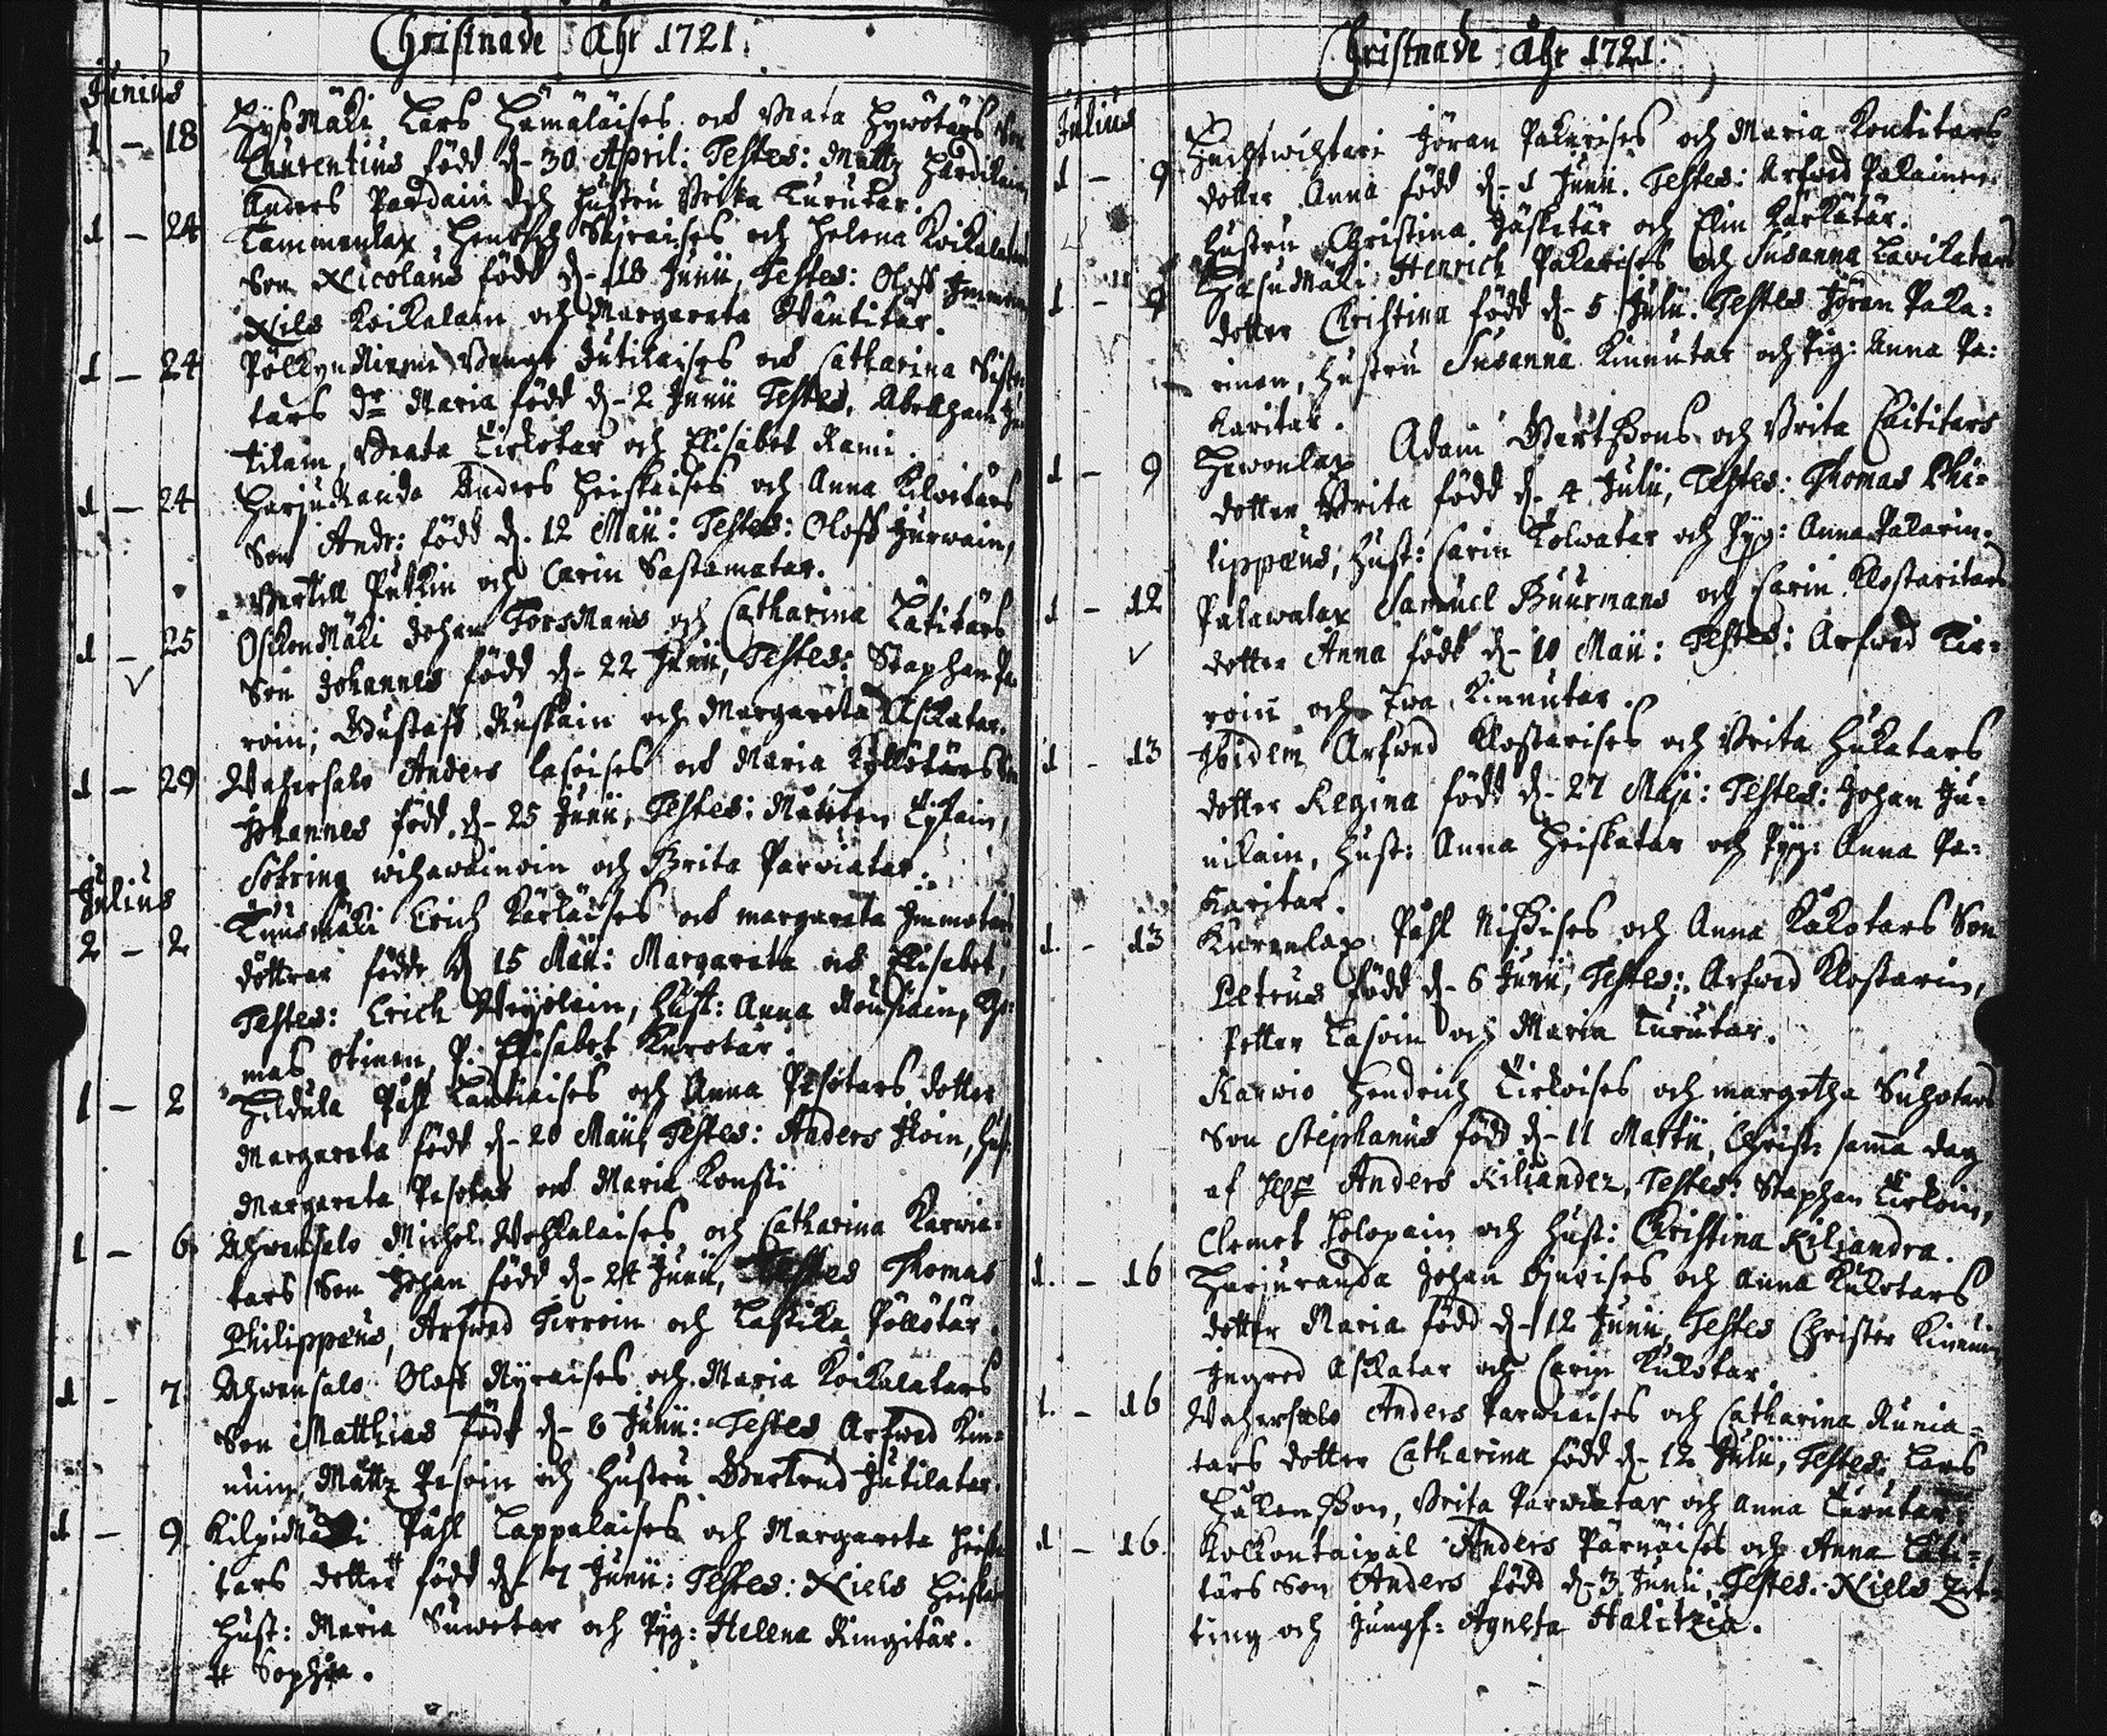 Christnade Åhr 1721.
Junius
1 - 18 Hyßmäki Lars Hämäläises och Beata Hywötärs Son
Laurentius född d. 30 April: Testes: Mattz Hardikain
Anders Pardain och hustru Brita Turutar.
1 - 24 Lammenlax Hendrich Sairaises och Helena Koikalatars
Son Nicolaus född d. 18 Junii, Testes: Oloff Immonen
Nils Koikalain och Margareta Wäntitär.
1 - 24 Pöllyn Niemi Bengt Jutilaises och Catharina
tärs dr Maria född d. 2 Junii Testes, Abraham Ju
tilain, Beata Tirkotar och Elisabet Rami.
1 - 24 HarjuRanda Anders Heiskaises och Anna Kilwitärs
Son Andr: född d. 12 Maii: Testes: Oloff Hurwain,
Bertill Putkin och Carin Sastamatar.
1 - 25 OrikonMäki Johan ForsMans och Catharina Lätitärs
Son Johannes född d. 22 Junii, Testes: Staphan Pa
roin; Gustaff Ruskain och Margareta Asikatar.
1 - 29 Wahersalo Anders Lasoises och Maria Kyllötärs Son
Johannes född d. 25 Junii, Testes: Mårten Tijain,
Söfring wihawainoin och Brita Parwiatar.
Julius
2 - 2 Tuusmäki Erich Kärläises och margareta Immotars
döttrar födde d 15 Maii: Margareta och Elisabet,
Testes: Erich Weijolain, Hust: Anna Rousiain, Tho:
mas otinen, P. Elisabet Kurotar.
1 - 2 Heldula Påhl Lautiaises och Anna Pesotars dotter
Margareta född d. 20 Maii, Testes: Anders Ikoin, Hust
Margareta Pesotar och Maria Konsti
1 - 6 Ahwensalo Michel Wehkalaises och Catharina Karwia:
tars Son Johan född d. 24 Junii, Testes Thomas
Philippæus, Arfwed Tirroin och Lastika Pöllötär.
1 - 7. Ahwensalo Oloff Nyraises och Maria Koikalatars
Son Matthias född d. 6 Junii: Testes Arfwed Kin=
nuin, Mattz Pesoin och Hustru Gertrud Jutilatar.
1 - 9. KilpiMäki Påhl Lappalaises och Margareta Heiska
tars dotter # född d. 7 Junii: Testes: Niels Heiskain
Hust: Maria Suwotar och Pyg: Helena Ringitär.
# Sophia.
Christnade Åhr 1721.
Julius
1 - 9 Huchtwichtari Jöran Pakarises och Maria Kontitars
dotter Anna född d. 1 Junii. Testes: Arfwed Pakainen
Hustru Christina Jäsketär och Elin Kärkätär.
1 - 9 HasuMäki Henrich Pakarises och Susanna Lavikatars
dotter Christina född d. 5 Julii. Testes Jöran Paka:
rinen, Hustru Susanna Kinnutar och Pig: Anna Pa:
karitar.
1 - 9 Hewonlax Adam Gertßons och Brita Laititars
dotter Brita född d. 4 Julii, Testes: Thomas Phi=
lippæus, Hust: Carin Tolwatar och Pyg: Anna Pakarin.
1 - 12 Palawalax Samuel Buurmans och Carin Klostaritars
dotter Anna född d. 10 Maii: Testes: Arfwed Tir=
roin och Ewa Kinnutar.
1 - 13 Ibidem Arfwed Klostarises och Brita Hukatars
dotter Regina född d. 27 Maji: Testes: Johan Ju=
nilain, Hust: Anna Heiskatar och Pyg: Anna Pa=
karitar.
1. - 13 Kurenlax Påhl Nißises och Anna Kakotars Son
Petrus född d. 6 Junii, Testes: Arfwed Klostarin,
Petter Lasoin och Maria Turutar.
Karwio Hendrich Tirkoises och margetha Suhotars
Son Stephanus född d. 11 Martii, Christ: samma dag
af Herr Anders Kiljander, Testes: Staphan Tirkoin,
Clemet Holopain och Hust: Christina Kiljandra.
1. - 16 Harjuranda Johan Ojurises och Anna Kukotars
dotter Maria född d. 12 Junii, Testes Christer Kinnuin
Ingred Asikatar och Carin Kukotar.
1. - 16 Wahersalo Anders Parwiaises och Catharina Runia=
tars dotter Catharina född d. 12 Julii, Testes, Lars
Håkenßon, Brita Parwiatar och Anna Turutar.
1 - 16. Kolkontaipal Anders Pärnäises och Anna Läti=
tärs Son Anders född d. 3 Junii, Testes. Niels
ting och Jungf: Agneta Halitzia.